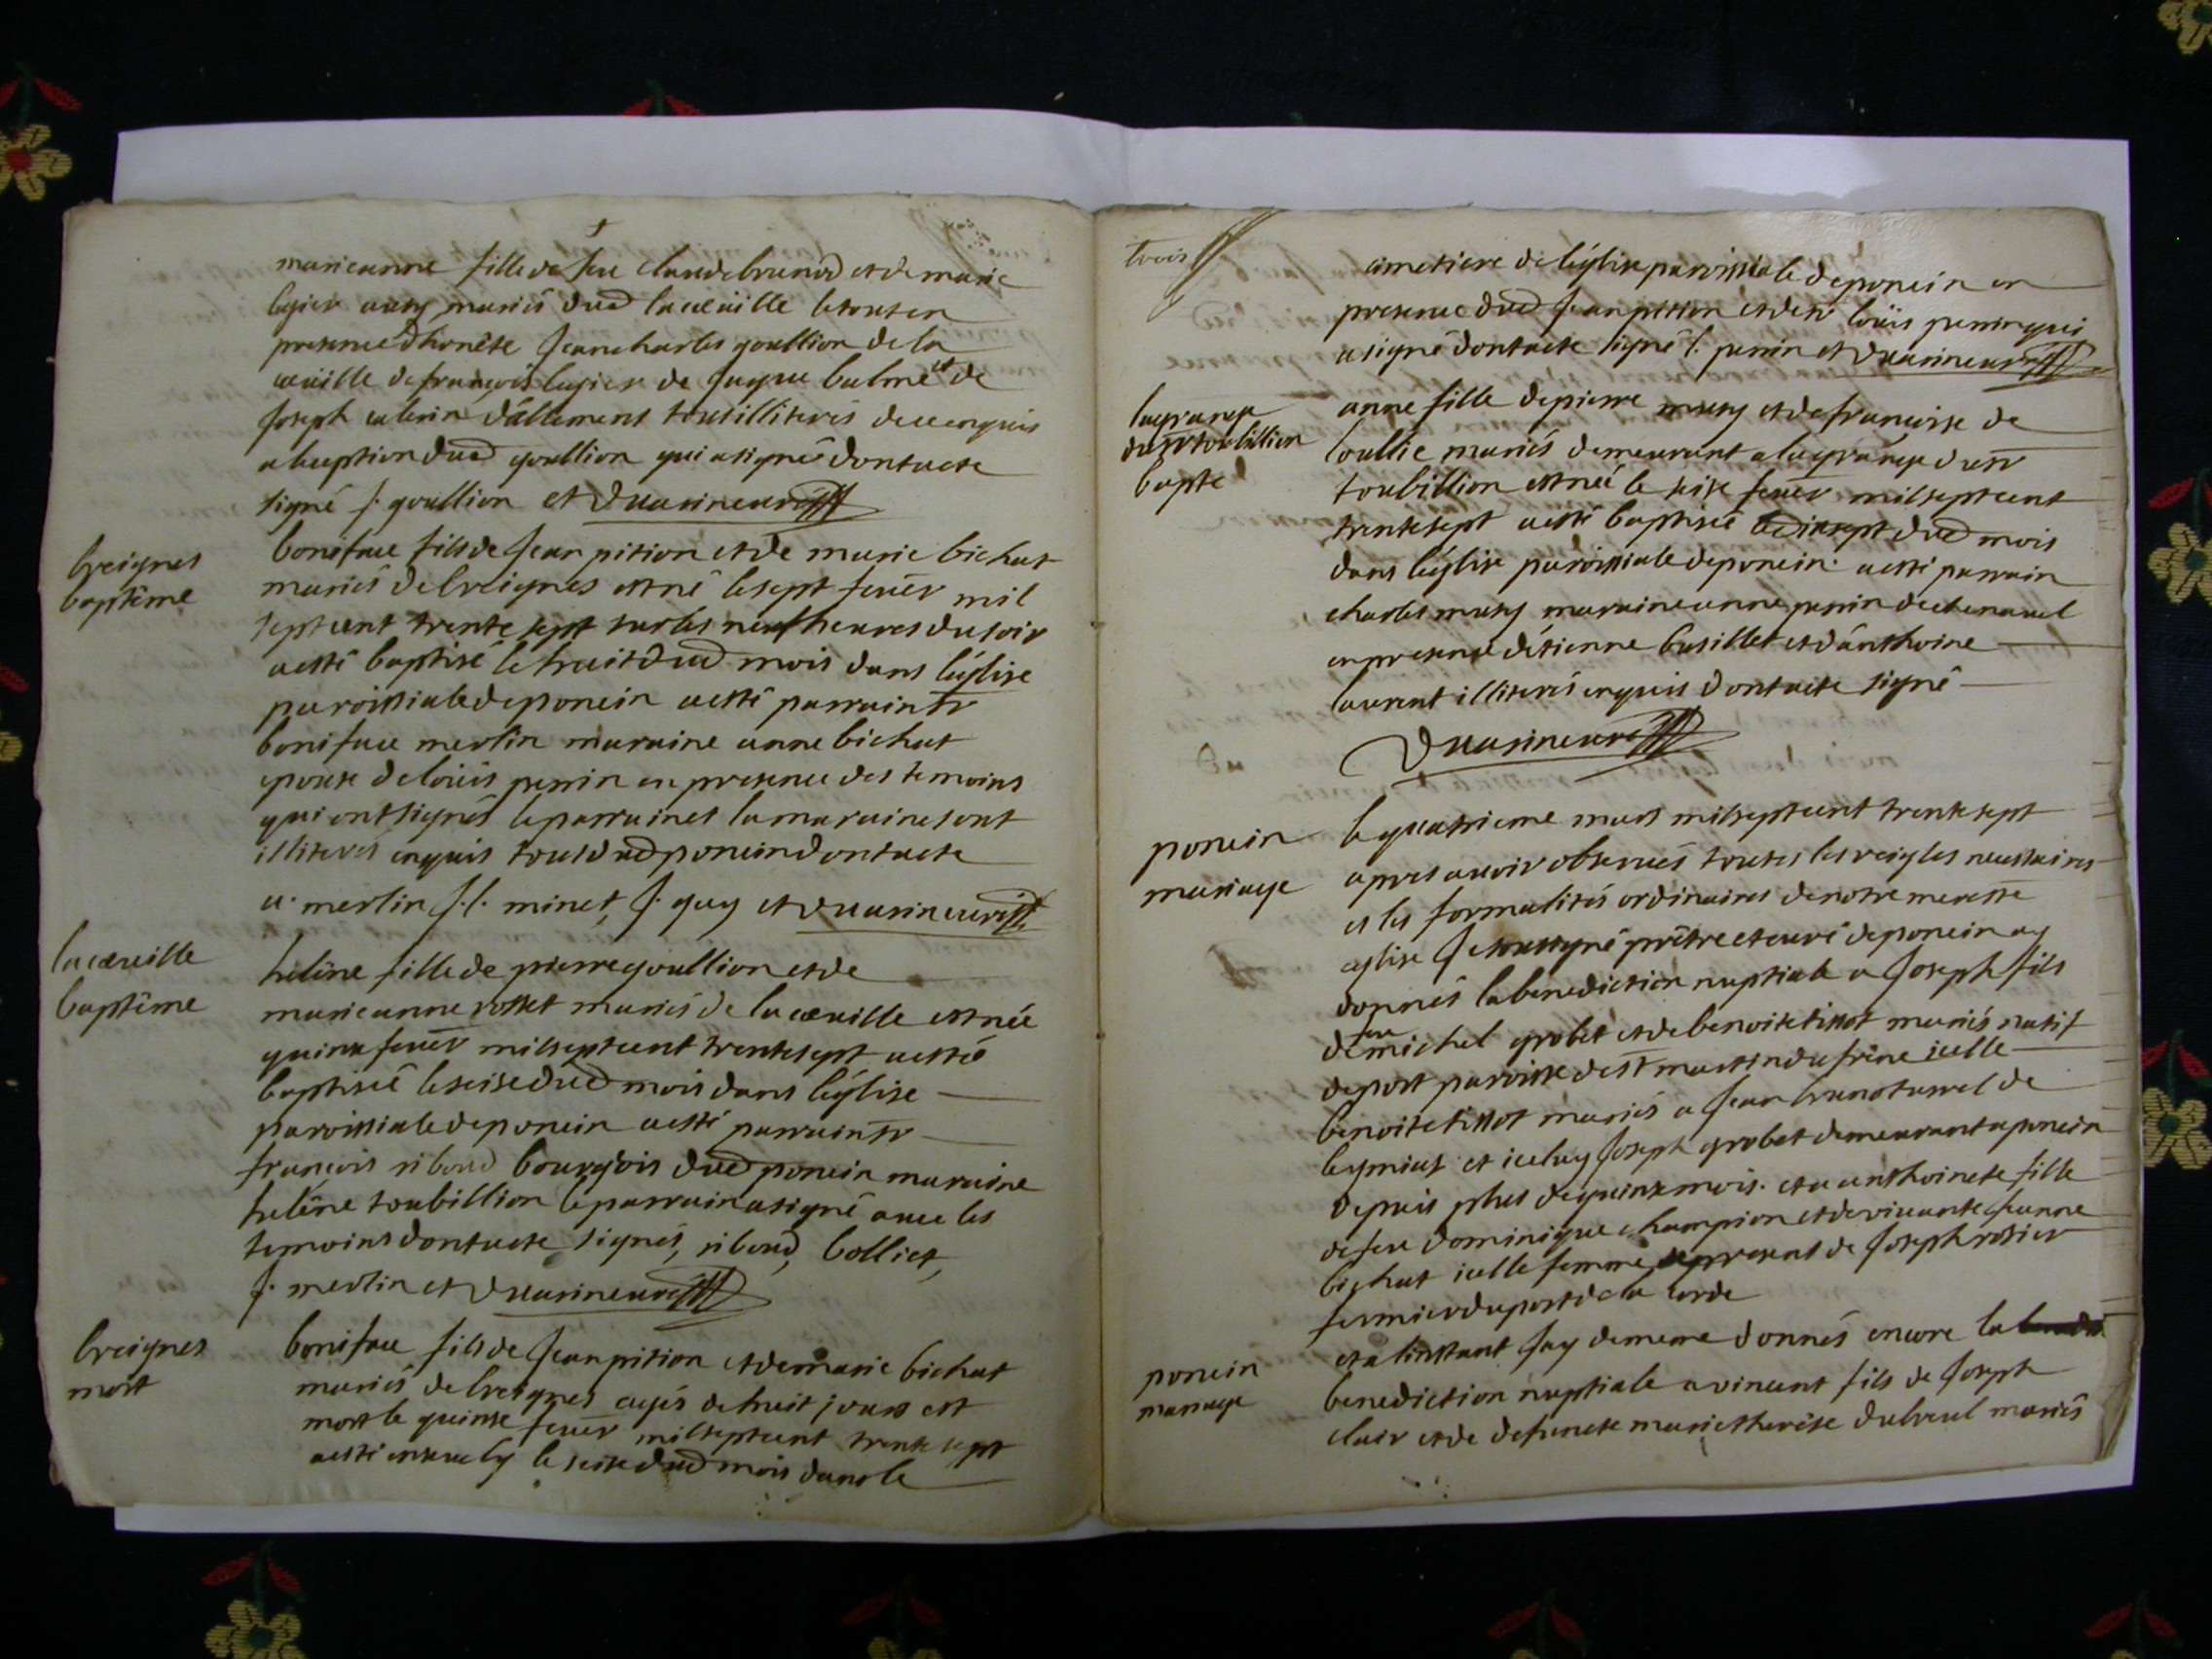 marieanne fille de feu claude brunod et de marie
legier aussy mariés dud la cœuille le tout en
presence dhonête Jean charles goullion de la
cœuille de françois legier de Jaque balme et de
Joseph dâllement tous illiterés de ce enquis
a lexeption dud goullion qui a signé dont acte
signé J. goullion et Duarineure
breignes
baptême
boniface fils de Jean pition et de marie bichat
mariés de breignes est né le sept feuer mil
sept cent trente sept sur les neuf heures du soir
a esté baptisé le huit dud mois dans léglise
paroissiale de poncin a esté parrain sr
boniface merlin maraine anne bichat
epouse de loüis perrin en presence des temoins
qui ont signés le parrain et la maraine sont
illiterés enquis tous dud poncin dont acte
a. merlin J. l. minet, J. guy et Duarineure
la cœuille
baptême
helêne fille de pierre goullion et de
marie anne rosset mariés de la cœuille est née
quinze feuer mil sept cent trente sept a esté
baptisée le seise dud mois dans léglise
paroissiale de poncin a esté parrain sr
françois riboud bourgeois dud poncin maraine
helêne toubillion le parrain a signé auec les
temoins dont acte signés, riboud, bolliet,
J. merlin et Duarineure
breignes
mort
boniface fils de Jean pition et de marie bichat
mariés de breignes agés de huit jours est
mort le quinse feuer mil sept cent trente sept
a esté enseuely le seise dud mois dans le
trois
cimetiere de léglise paroissiale de poncin en
presence dud Jean pition et de sr loüis perrin qui
a signé dont acte signé l. perrin et Duarineure
la grange
du sr toubillion
bapte
anne fille de pierre musy et de francoise de
loullie mariés demeurant a la grange du sr
toubillion est née le seise feuer mil sept cent
trente sept a esté baptisée le disept dud mois
dans léglise paroissiale de poncin a esté parrain
charles musy maraine anne perrin de chenauel
en presence détienne busillet et dânthoine
laurent illiterés enquis dont acte signé
Duarineure
poncin
mariage
le quatrieme mars mil sept cent trente sept
apres auoir obserués toutes les reigles necessaires
et les formalités ordinaires de notre mere ste
eglise Je soussigné prêtre et curé de poncin ay
donnés la benediction nuptiale a Joseph fils
de feu michel grobet et de benoite tissot mariés natif
de port paroisse de st martin du frêne icelle
benoite tissot mariés a Jean brunot de
leymiat et iceluy Joseph grobet demeurant a poncin
depuis plus de quinze mois. et a anthoinete fille
de feu dominique champion et de viuante Jeanne
bichat icelle femme a present de Joseph rosier
fermier du port de la corde
poncin
mariage
et a linstant Jay de meme donnés encore la
benediction nuptiale a vincent fils de Joseph
clair et de defuncte marie therêse dubreul mariés